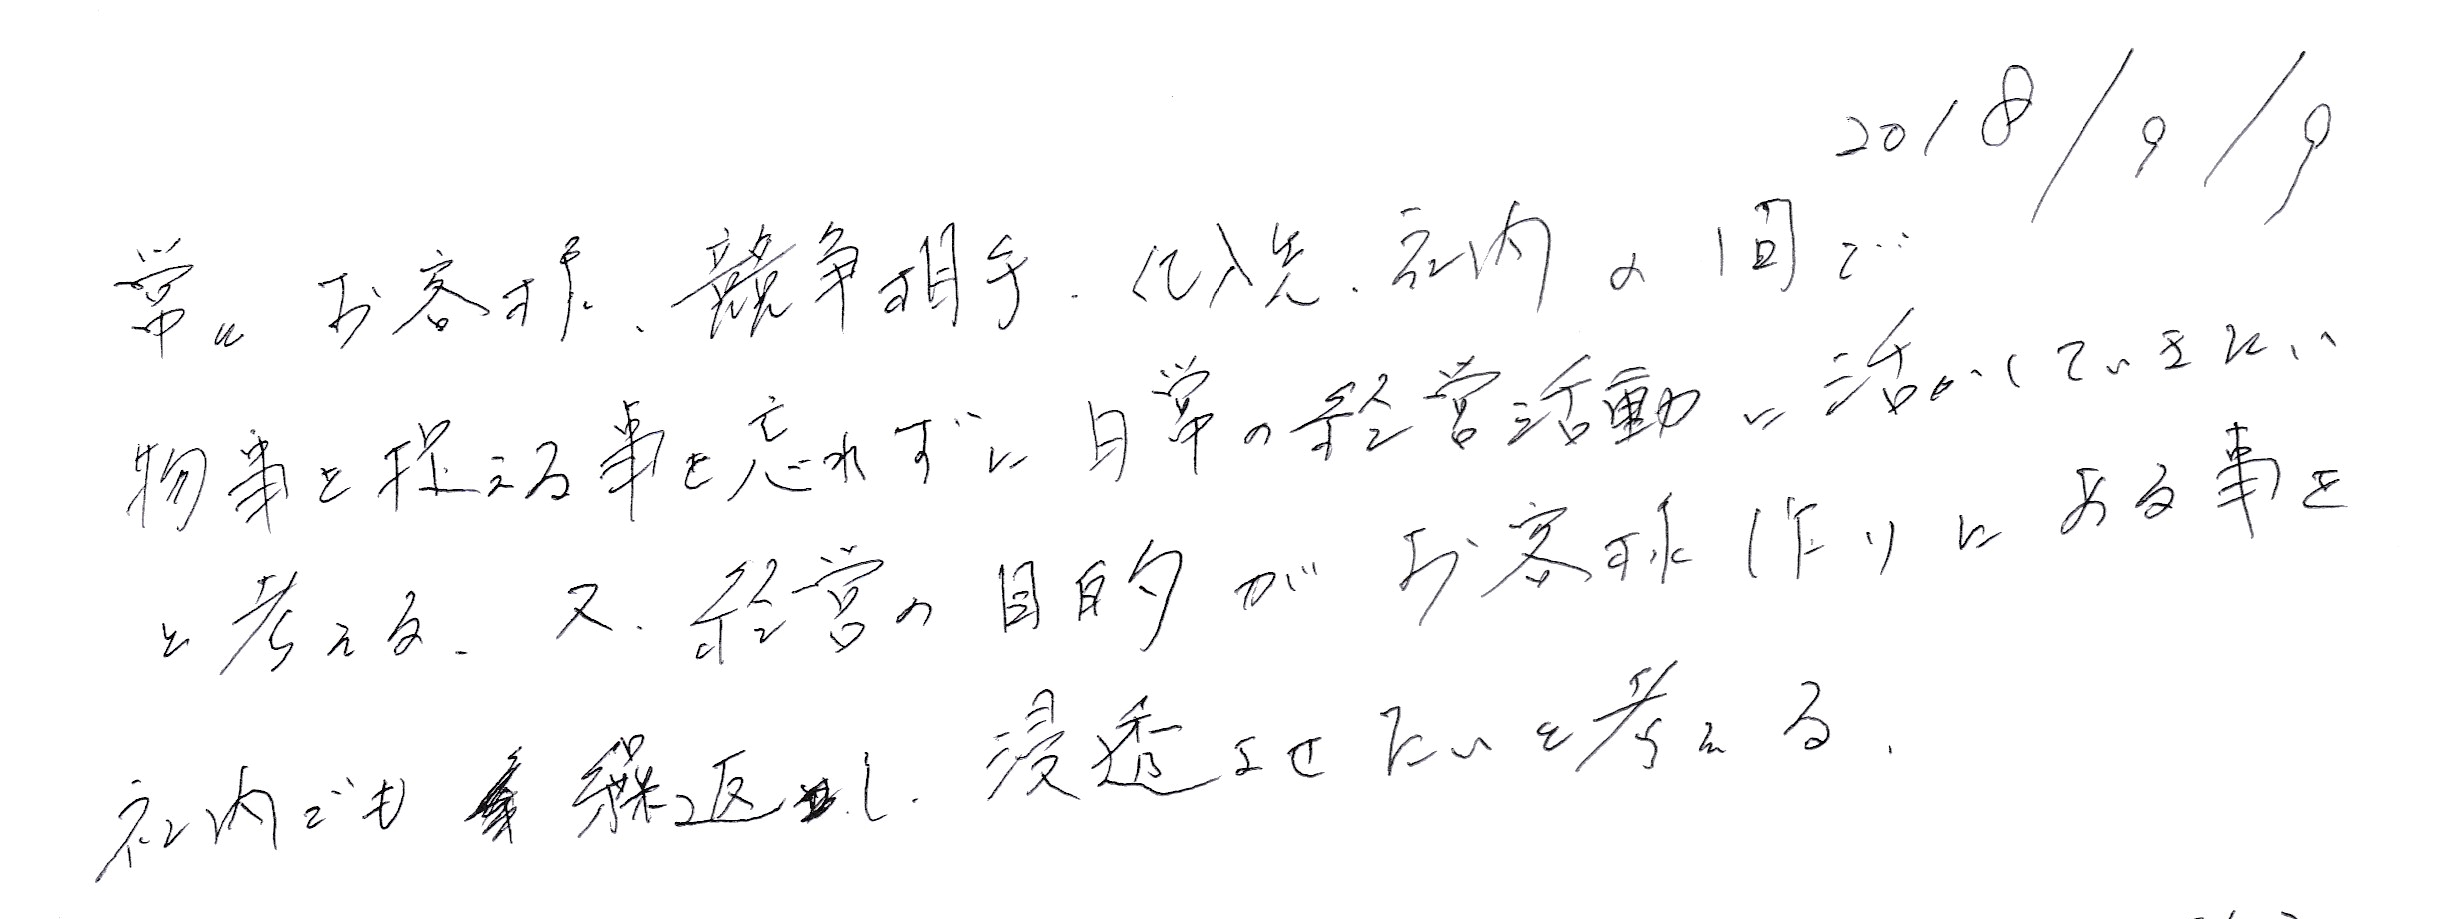 2018/9/9
常に お客様、競争相手、仕入先、社内の間で
物事を捉える事を忘れずに日常の経営活動に活かしていきたい
と考える。又、経営の目的がお客様作りにある事を
社内でも繰返し、浸透させたいと考える。